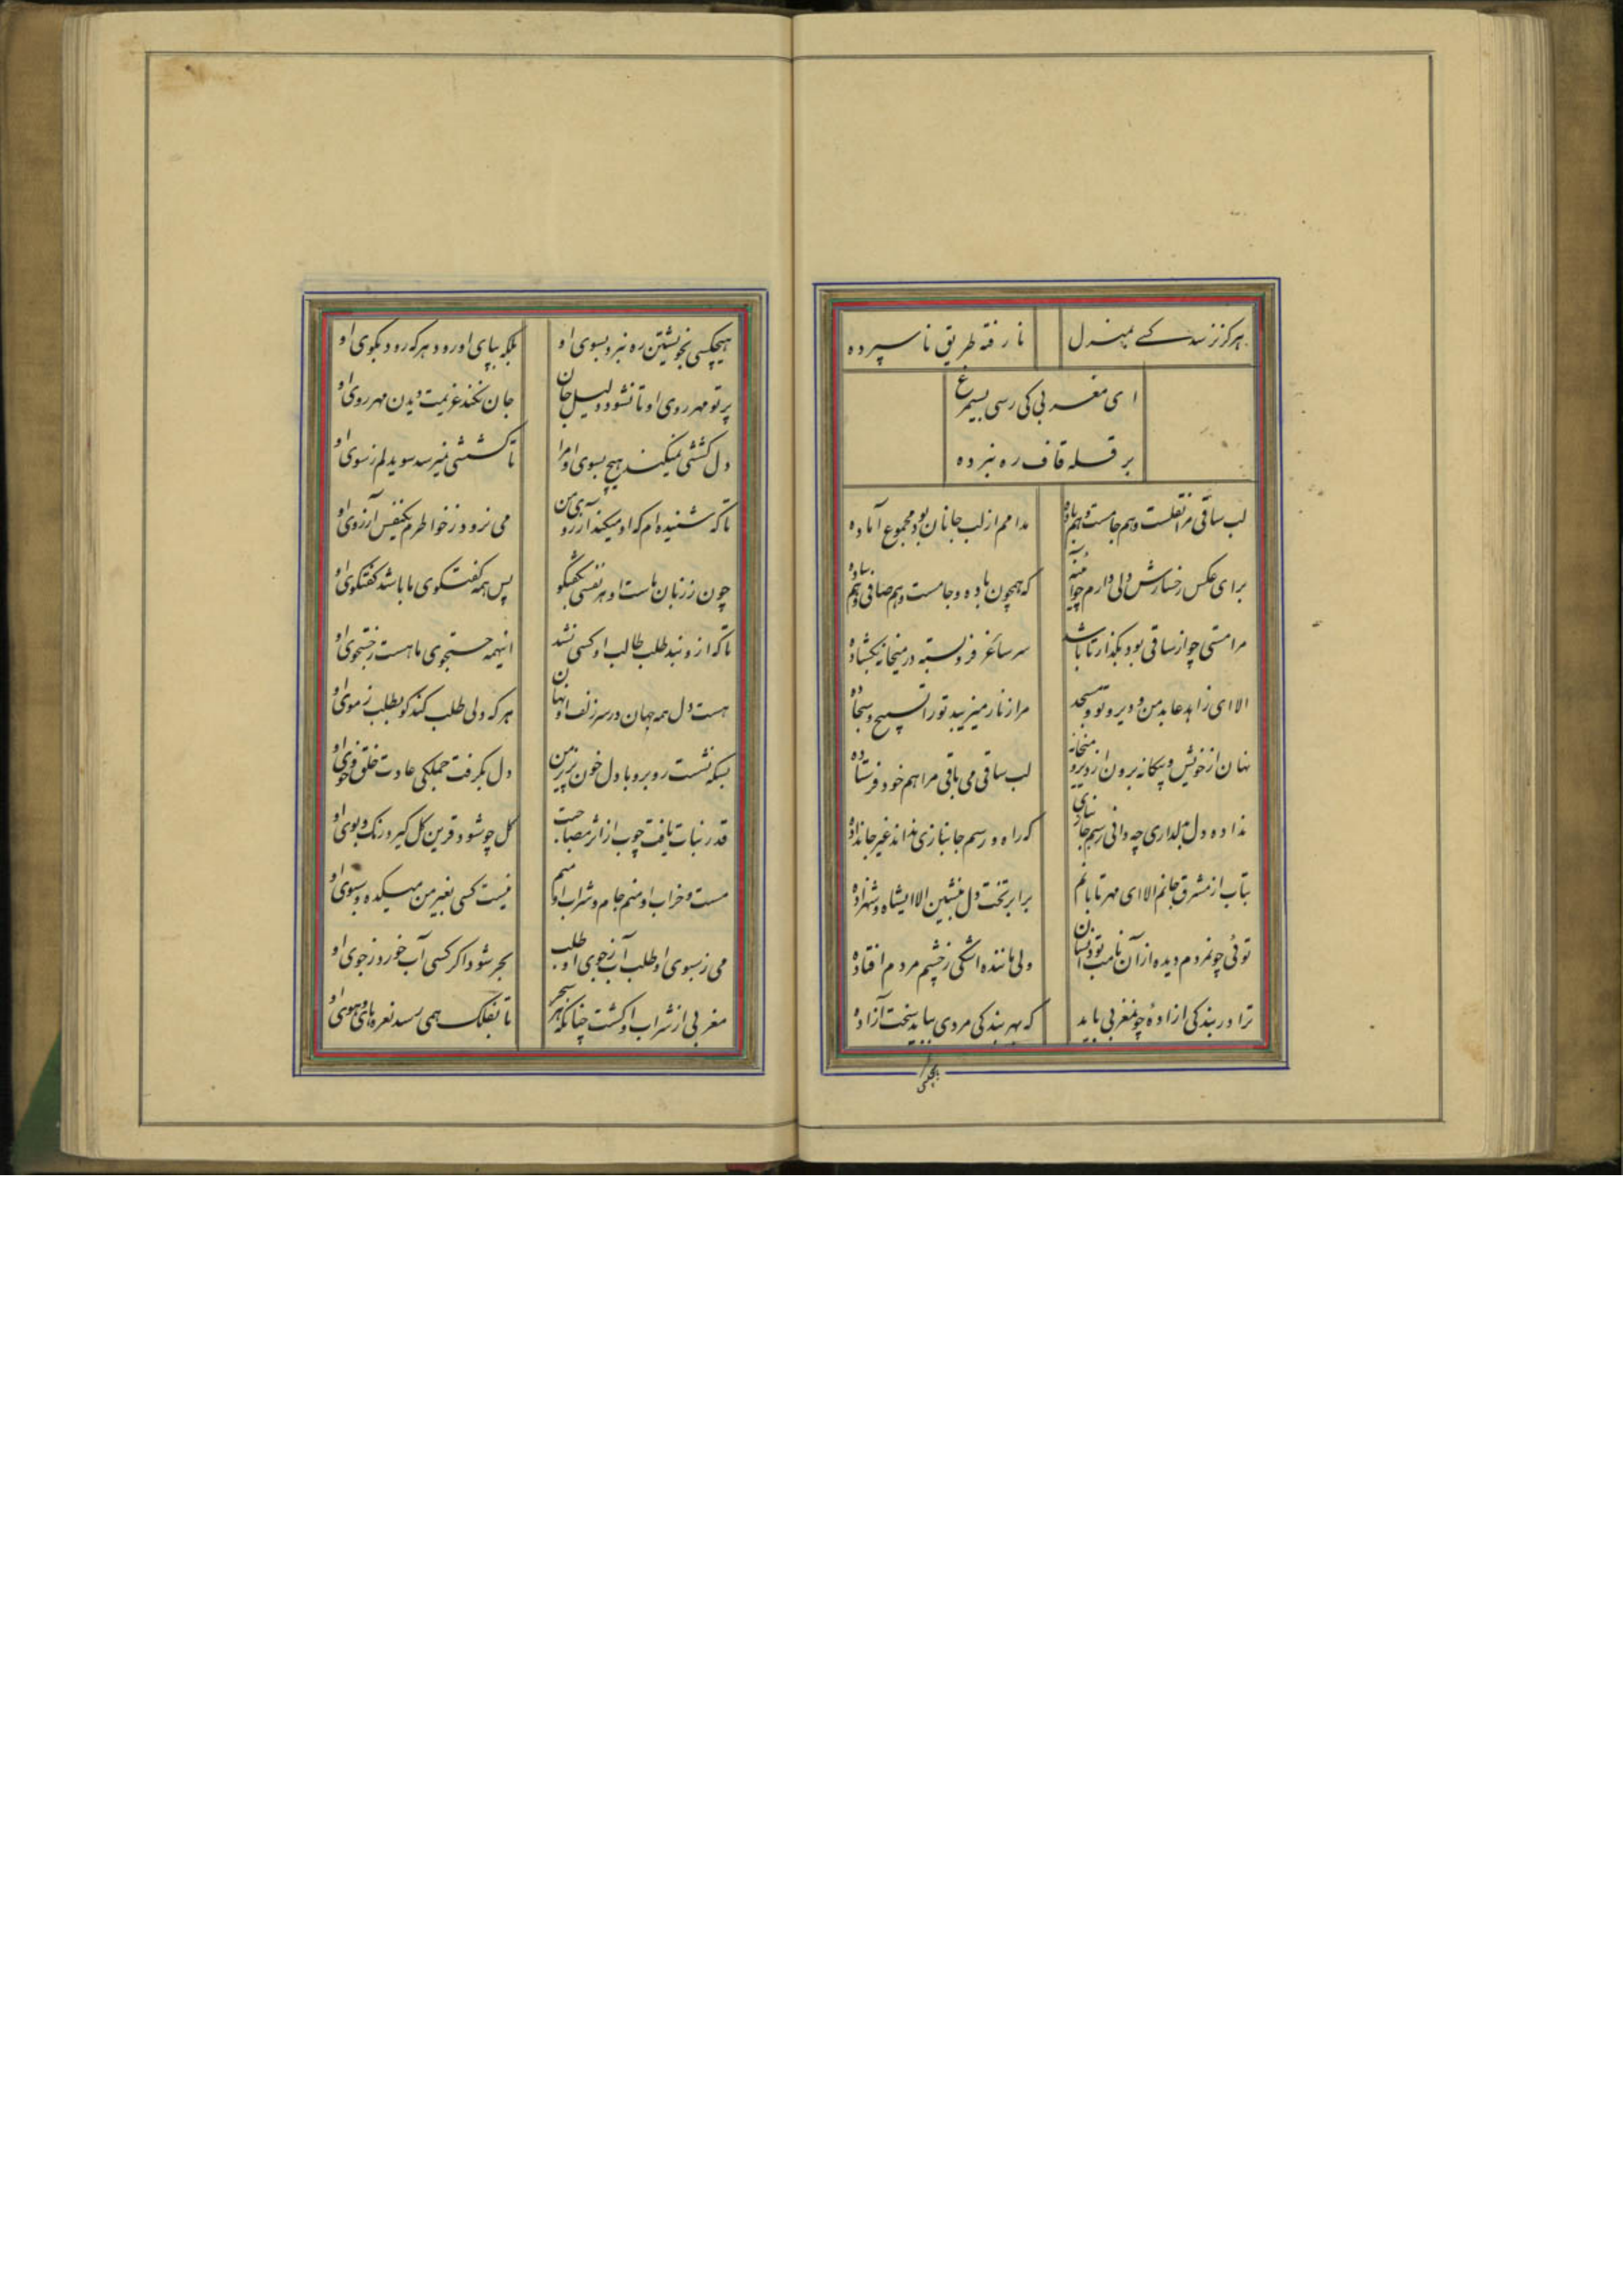 هرگز نرسد کسی بمنزل
نارفته طریق ناسپرده
ای مغربی کی رسی بسیمرغ
بر قله قاف ره نبرده
لب ساقی مرا نقلست و هم جامست و هم باده
مدامم از لب جانان بود مجموع آماده
برای عکس رخسارش دلی دارم چو آئینه
که همچون باده و جامست و هم صافی و هم ساده
مرا مستی چو از ساقی بود بگذار تا باشد
سر ساغر فرو بسته در میخانه بگشاده
الا ای زاهد عابد من و دیر و تو و مسجد
مرا زنار میزیبد تو را تسبیح و سجاده
نهان از خویش و بیگانه برون از دیر و میخانه
لب ساقی می باقی مرا هم خود فرستاده
نداده دل بدلداری چه دانی رسم جانبازی
که راه و رسم جانبازی نداند غیر جانداده
بتاب از مشرق جانم الا ای مهر تابانم
برابر تخت دل بنشین الا ایشاه و شهزاده
توئی چو نمردم دیده از آن نامت بود انسان
ولی ماننده اشکی ز چشم مردم افتاده
ترا در بندگی ازادهٔ چو نمغربی باید
که بهر بندگی مردی بباید سخت آزاده
هیچکسی
هیچکسی بخویشتن ره نبرد بسوی او
بلکه بپای او رود هرکه رود بکوی او
پرتو مهر روی او تا نشود دلیل جان
جان نکند عزیمت دیدن مهر روی او
دل کششی نمیکند هیچ بسوی او مرا
تا کششی نمیرسد سوید لم ز سوی او
تا که شنیده ام که او میکند آرزوی من
می نرود ز خواطرم یکنفس آرزوی او
چون ز زبان ماست او هر نفسی بگفتگو
پس همه گفتگوی ما باشد گفتگوی او
تا که ازو نبد طلب طالب او کسی نشد
اینهمه جستجوی ما هست ز جستجوی او
هست دل همه جهان در سر زلف او نهان
هر که دلی طلب کند گو بطلب ز موی او
بسکه نشست روبرو با دل خون پریر من
دل بگرفت جملگی عادت خلق و خوی او
قدر نبات یافت چوب از اثر مصاحبت
گل چو شود قرین گل گیرد رنگ و بوی او
مست و خراب او منم جام و شراب او منم
نیست کسی بغیر من میکده و سبوی او
می ز سبوی او طلب آب ز جوی او طلب
بحر شود اگر کسی آب خورد ز جوی او
مغربی از شراب او گشت چنانکه هر سحر
تا بفلک همی رسد نعره های و هوی او